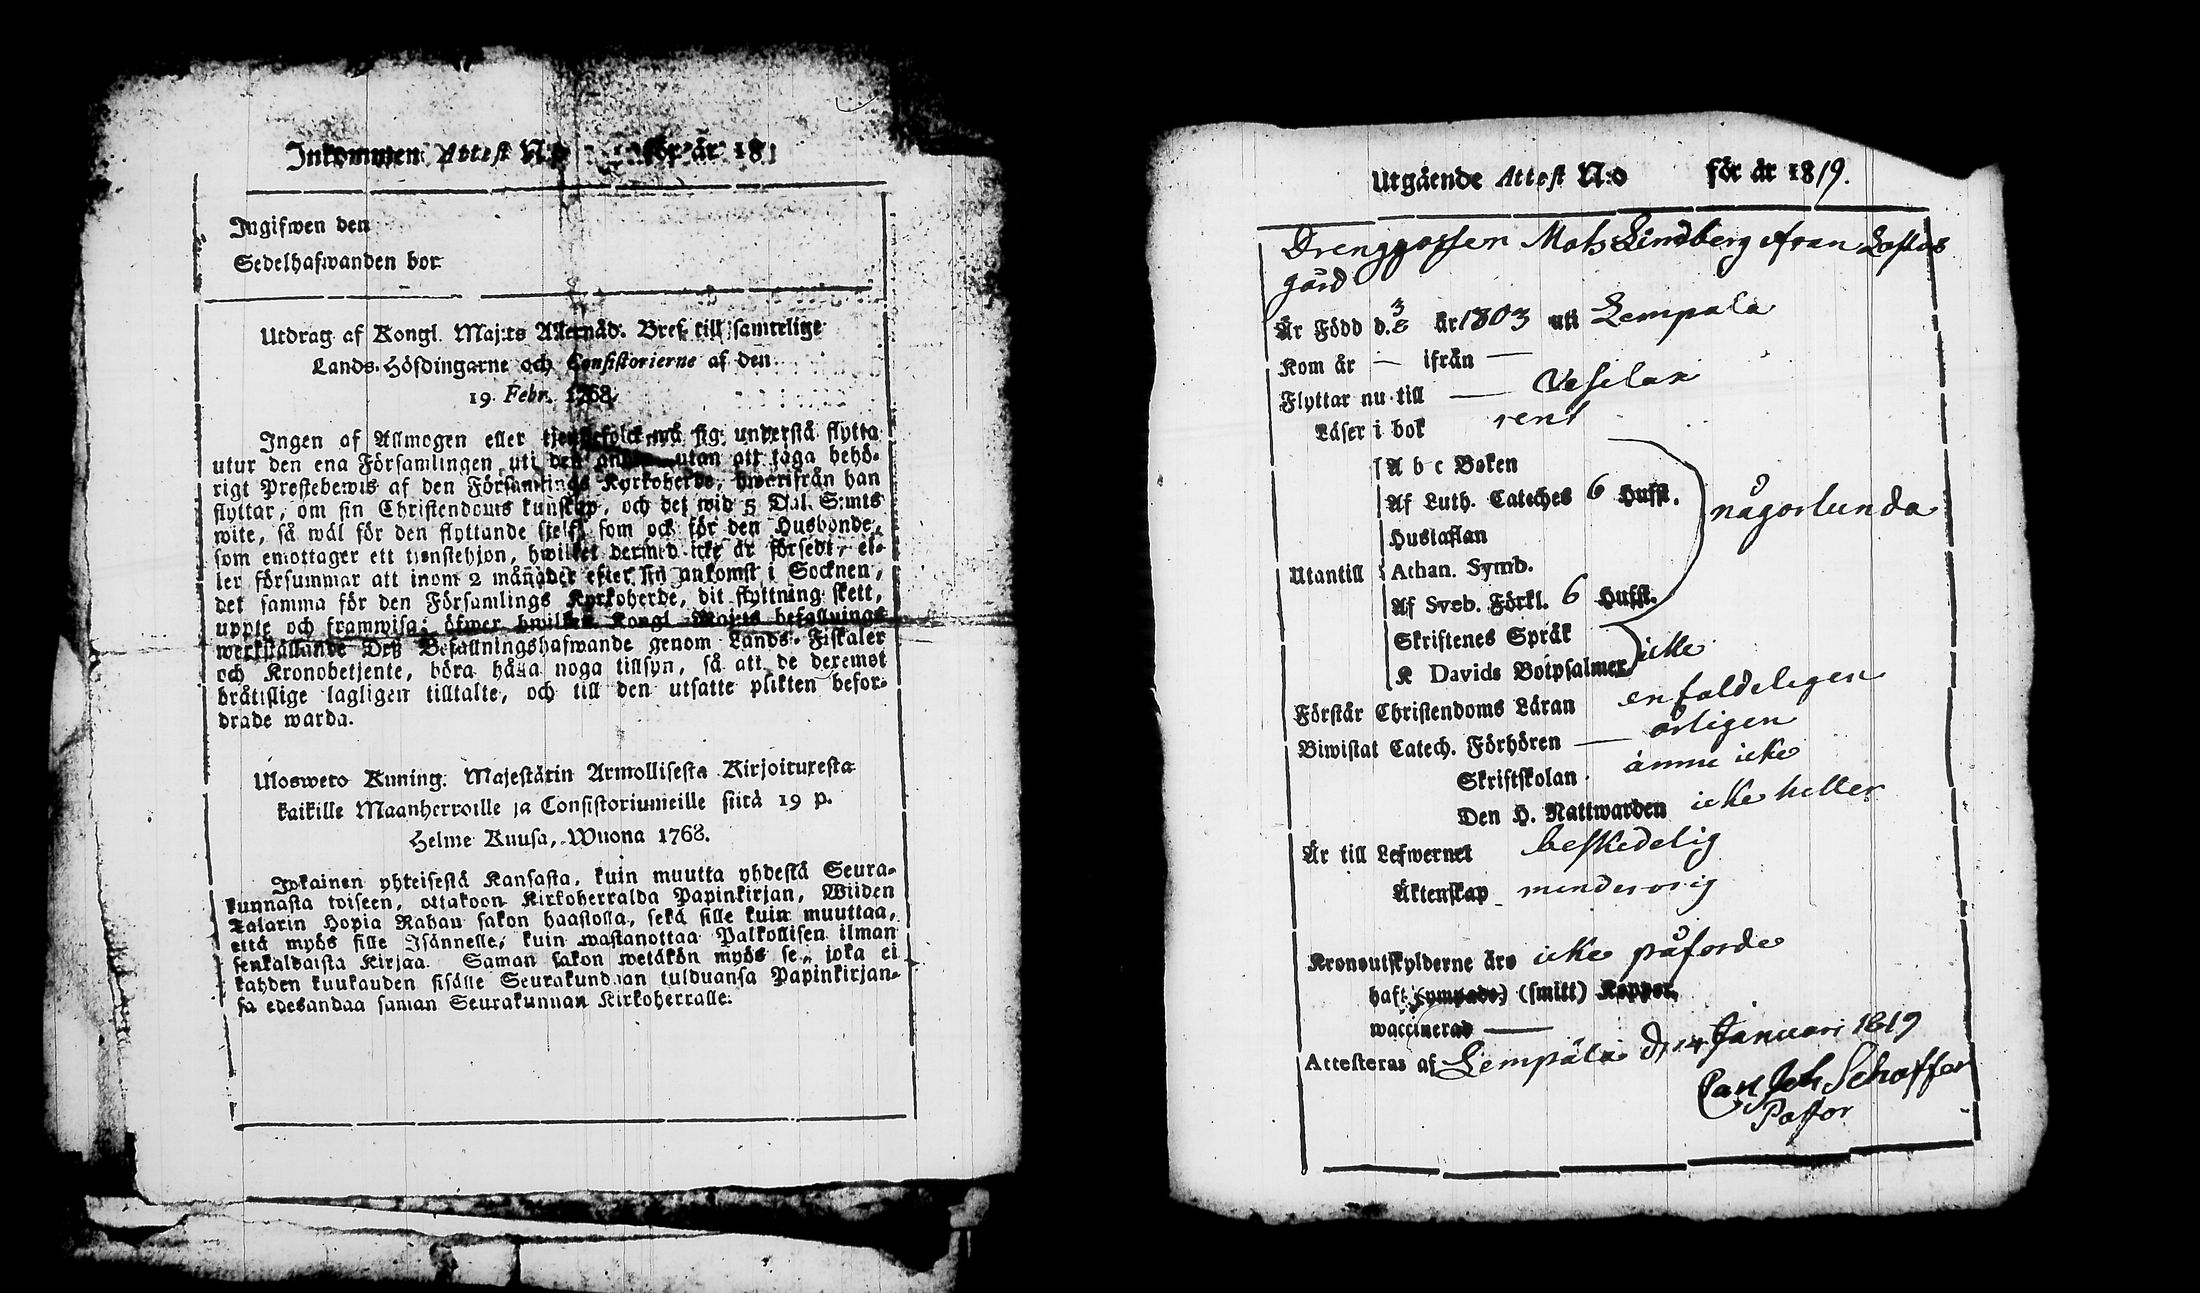 Inkommen Attest N:o för år 181
Ingifwen den
Sedelhafwanden bor
Utdrag af Kongl. Maj:ts Allernåd. Bref till samtelige
Lands-Höfdingarne och Consistorierne af den
19 Febr. 1768.
Ingen af Allmogen eller tjenstefolck må sig understå flytta
utur den ena Församlingen uti den andra utan att taga behö-
rigt Prestebewis af den Församlings Kyrkoherde, hwarifrån han
flyttar, om sin Christendoms kunskap, och det wid 5 Dal. S:mts
wite, så wäl för den flyttande sjelf, som ock för den Husbonde,
som emottager ett tjenstehjon, hwilket dermed icke är försedt, el-
ler försummar att inom 2 månader efter sin ankomst i Socknen,
det samma för den Församlings Kyrkoherde, dit flyttning skett,
uppte och framwisa; öfwer hwilket Kongl Maj:ts befallnings
werkställande Deß Befallningshafwande genom Lands-Fiskaler
och Kronobetjente, böra hålla noga tillsyn, så att de deremot
bråtislige lagligen tilltalte, och till den utsatte plikten befor-
drade warda.
Ulosweto Kuning. Majestätin Armollisesta Kirjoituresta
kaikille Maanherroille ja Consistoriumeille siitä 19 p.
Helme Kuusa, Wuona 1768.
Jokainen yhteisestä Kansasta, kuin muutta yhdestä Seura-
kunnasta toiseen, ottakoon Kirkoherralda Papinkirjan, Wiiden
Talarin Hopia Rahan sakon haastolla, sekä sille kuin muuttaa,
että myös sille Isännelle, kuin wastanottaa Palkollisen ilman
senkaldaista Kirjaa. Saman sakon wetäkön myös se, joka ei
kahden kuukauden sisälle Seurakundaan tulduansa Papinkirjan-
sa edesandaa saman Seurakunnan Kirkoherralle.
Utgående Attest N:o för år 1819.
Drenggossen Mats Lindberg ifrån
gård
Är Född d. 3/8 år 1803 uti Lempala
Kom år — ifrån —
Flyttar nu till — Vesilax
Läser i bok rent
A b c Boken
Af Luth. Cateches 6 Hufst. någorlunda
Hustaflan
Utantill Athan. Symb.
Af Sveb. Förkl. 6 Hufst.
Skriftenes Språk
K Davids Botpsalmer icke
Förstår Christendoms Läran enfaldeligen
Biwistat Catech. Förhören — årligen
Skriftskolan ännu icke
Den H. Nattwarden icke heller
Är till Lefwernet beskedelig
Äktenskap minderorig
Kronoutskylderne äro icke påförde
haft (ympade) (smitt) Koppor.
waccinerad —
Attesteras af Lempälä d. 14 Januari 1819
Carl Joh Schaffer
Pastor